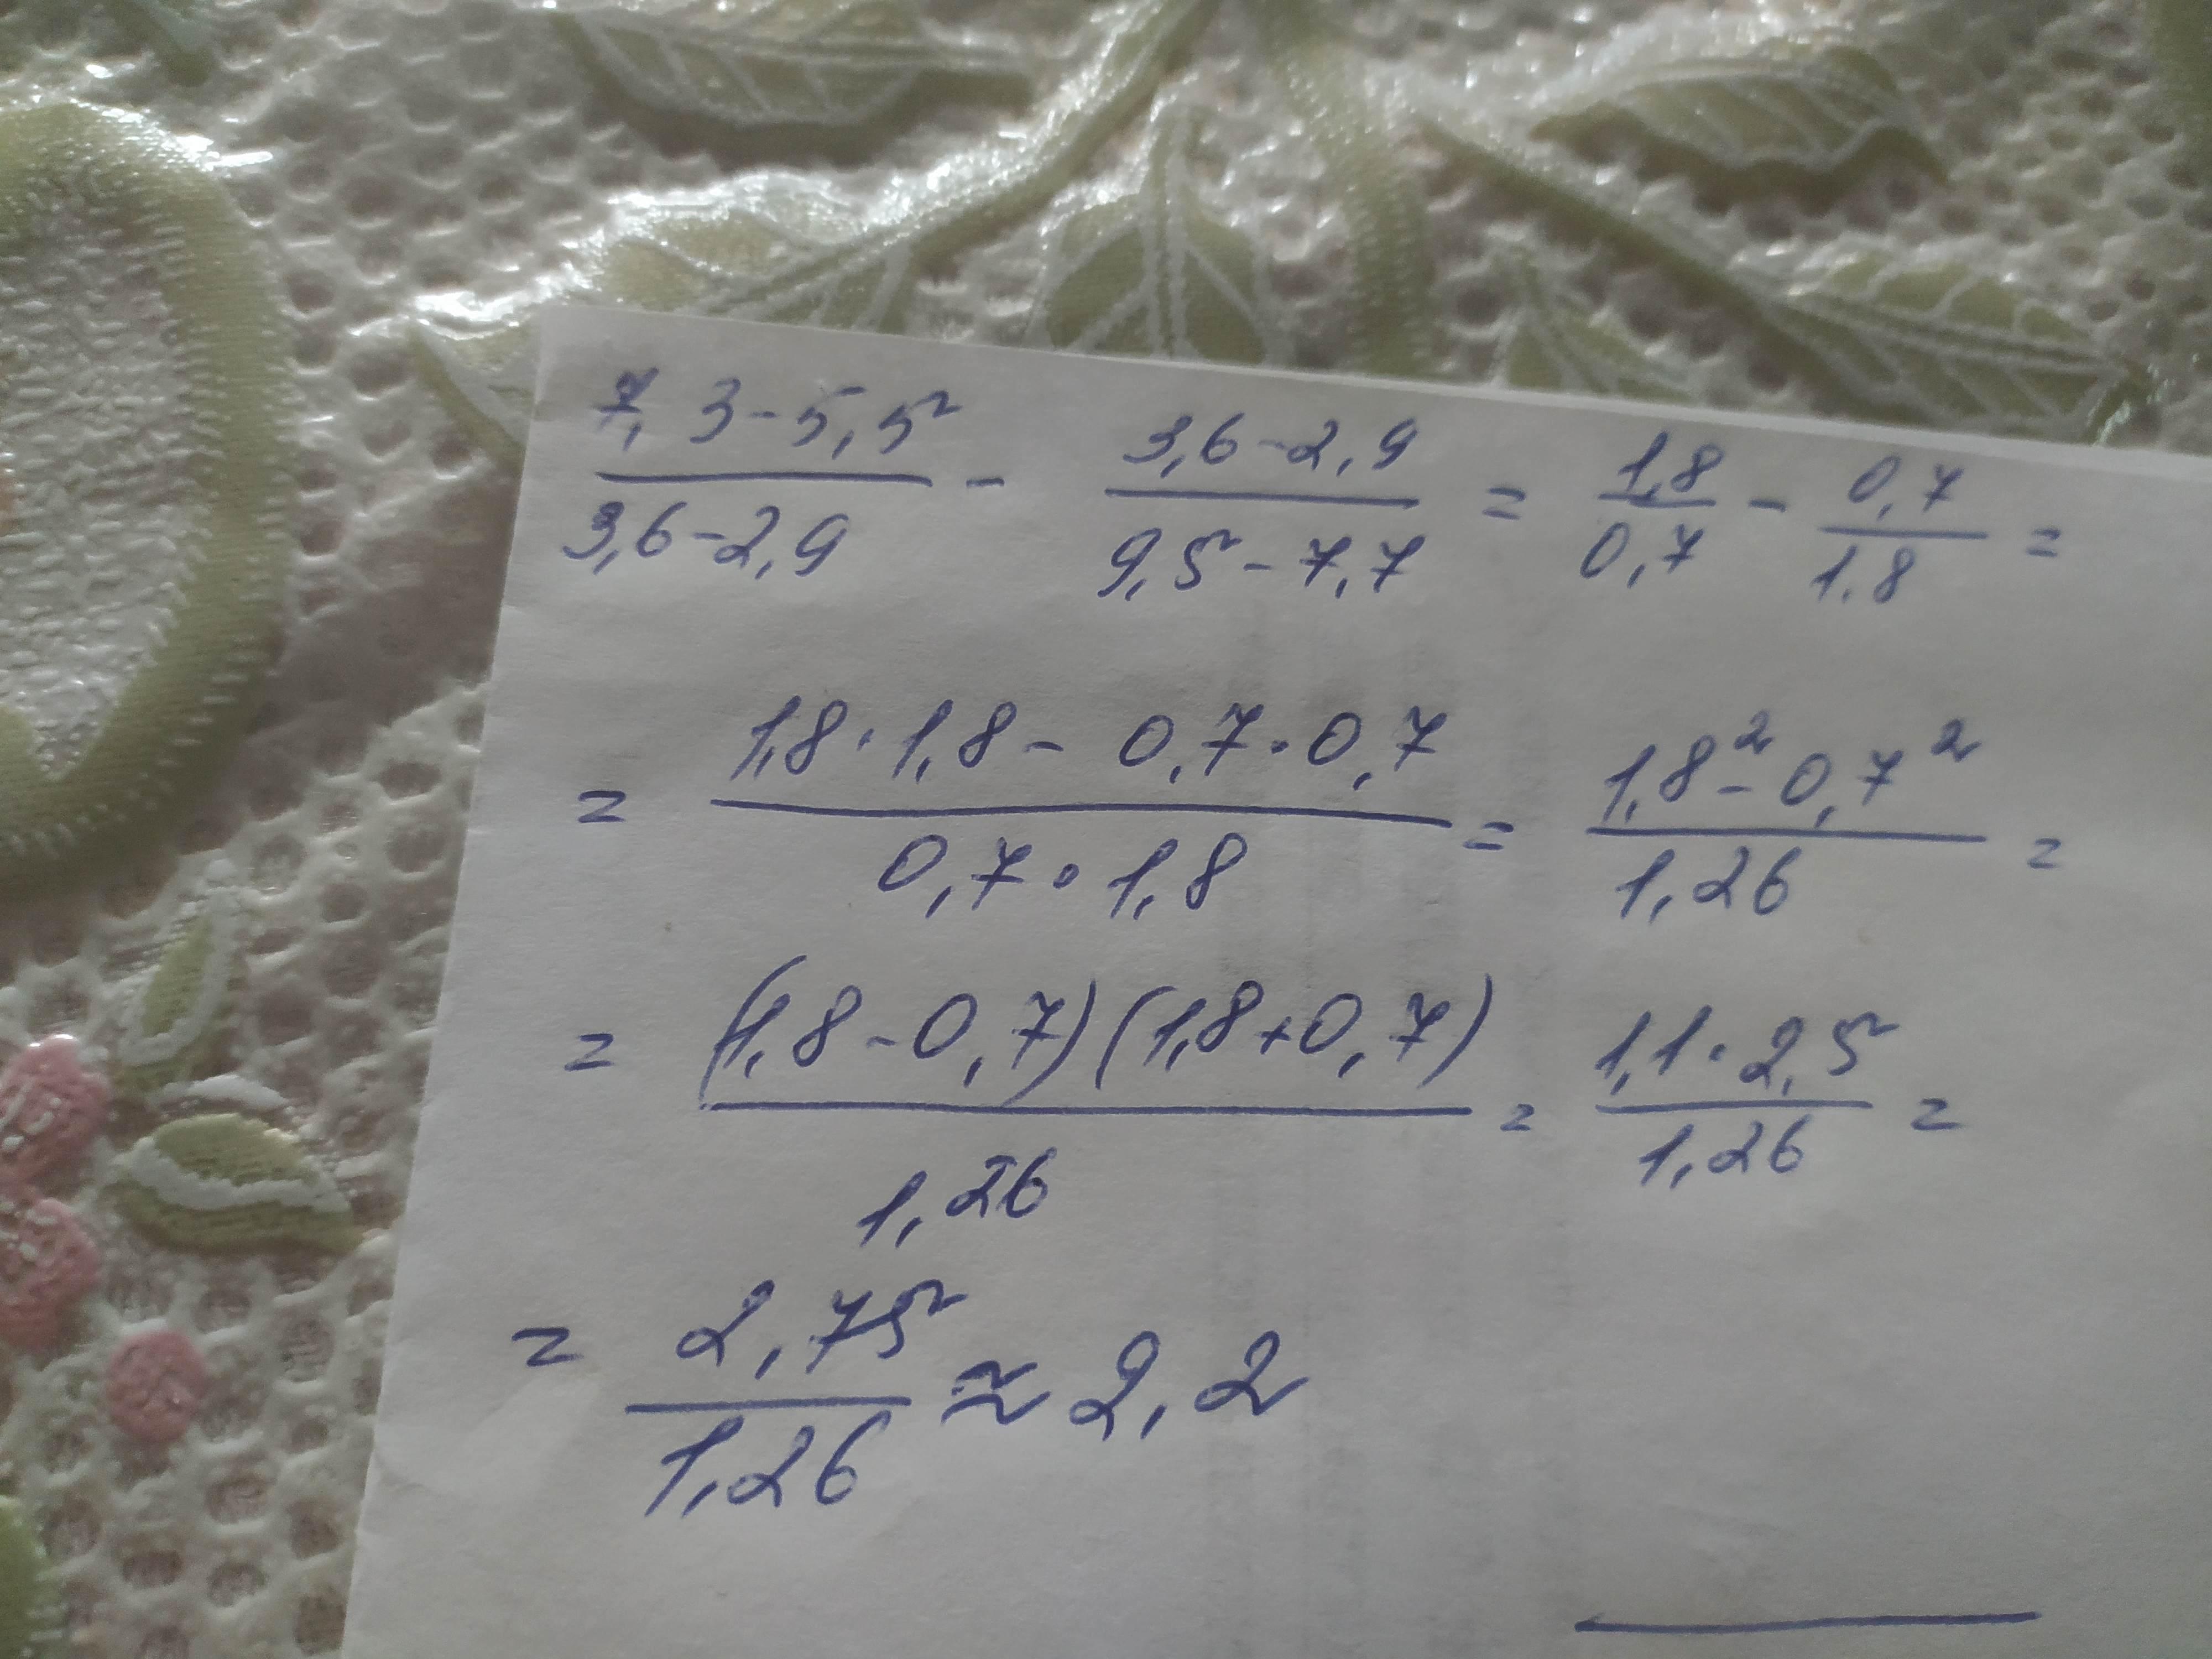 (7,3-5,5)/(3,6-2,9) - (3,6-2,9)/(9,5-7,7) = 1,8/0,7 - 0,7/1,8 =
= (1,8·1,8 - 0,7·0,7)/(0,7·1,8) = (1,8²-0,7²)/1,26 =
= (1,8-0,7)(1,8+0,7)/1,26 = (1,1·2,5)/1,26 =
= 2,75/1,26 ≈ 2,2